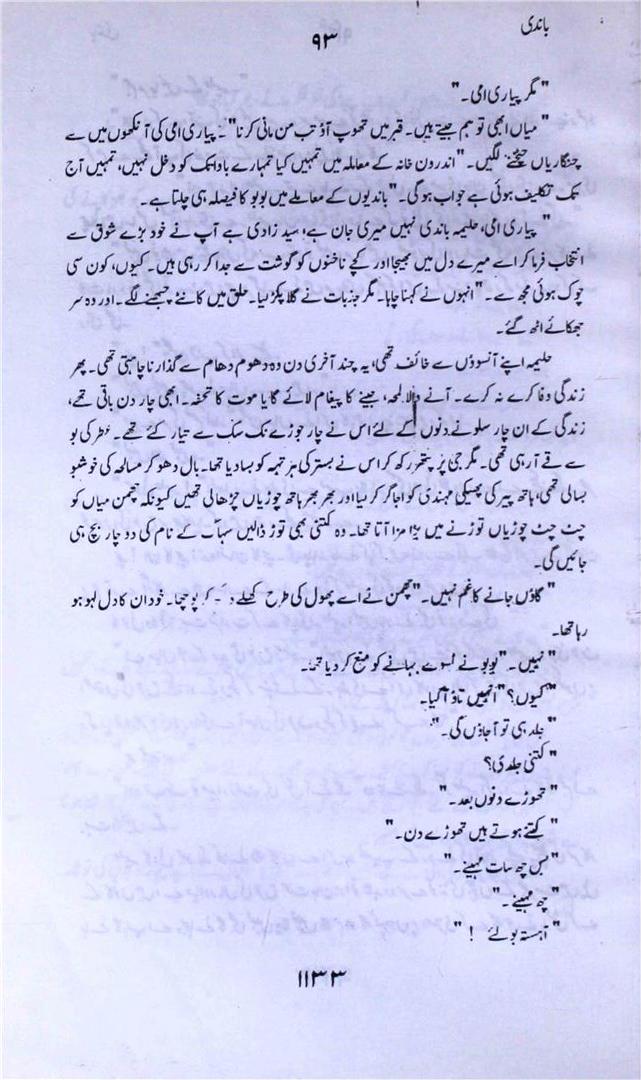 باندی
۹۳
"مگر پیاری امی۔"
"میاں ابھی تو ہم جیتے ہیں۔ قبر میں تھوپ آؤ تب من مانی کرنا"۔ پیاری امی کی آنکھوں میں سے
چنگاریاں چٹخنے لگیں۔ "اندرون خانہ کے معاملہ میں تمہیں کیا تمہارے باوا تک کو دخل نہیں، تمہیں آج
تک تکلیف ہوئی ہے جواب ہو گی۔" باندیوں کے معاملے میں بوبو کا فیصلہ ہی چلتا ہے۔
"پیاری امی، حلیمہ باندی نہیں میری جان ہے، سید زادی ہے آپ نے خود بڑے شوق سے
انتخاب فرما کر اسے میرے دل میں بھیجا اور کچے ناخنوں کو گوشت سے جدا کر رہی ہیں۔ کیوں، کون سی
چوک ہوئی مجھ سے۔" انہوں نے کہنا چاہا۔ مگر جذبات نے گلا پکڑ لیا۔ حلق میں کانٹے چبھنے لگے۔ اور وہ سر
جھکائے اٹھ گئے۔
حلیمہ اپنے آنسوؤں سے خائف تھی، یہ چند آخری دن وہ دھوم دھام سے گذارنا چاہتی تھی۔ پھر
زندگی وفا کرے نہ کرے۔ آنے والا لمحہ، جینے کا پیغام لائے گا یا موت کا تحفہ۔ ابھی چار دن باقی تھے،
زندگی کے ان چار سلونے دنوں کے لئے اس نے چار جوڑے تک سک سے تیار کئے تھے۔ عطر کی بو
سے قے آ رہی تھی۔ مگر جی پر پتھر رکھ کر اس نے بستر کی ہر تہہ کو بسا دیا تھا۔ بال دھو کر مسالحہ کی خوشبو
بسالی تھی، ہاتھ پیر کی پھیکی مہندی کو اجاگر کر لیا اور بھر بھر ہاتھ چوڑیاں چڑھالی تھیں کیونکہ چھمن میاں کو
چٹ چٹ چوڑیاں توڑنے میں بڑا مزا آتا تھا۔ وہ کتنی بھی توڑ ڈالیں سہاگ کے نام کی دو چار بچ ہی
جائیں گی۔
"گاؤں جانے کا غم نہیں۔" چھمن نے اسے پھول کی طرح کھلے دیکھ کر پوچھا۔ خود ان کا دل لہو ہو
رہا تھا۔
"نہیں۔" بوبو نے ٹسوے بہانے کو منع کر دیا تھا۔
"کیوں؟" انہیں تاؤ آ گیا۔
"جلد ہی تو آ جاؤں گی۔"
"کتنی جلدی؟
"تھوڑے دنوں بعد۔"
"کتنے ہوتے ہیں تھوڑے دن۔"
"بس چھ سات مہینے۔"
"چھ مہینے۔"
"آہستہ بولئے !"
۱۱۳۳